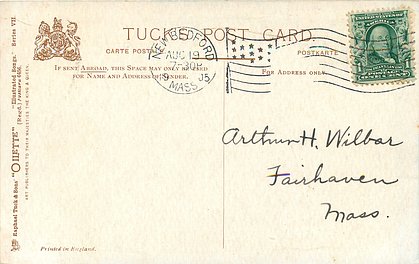 TUCK'S POST CARD.
CARTE POSTALE
POSTKARTE
NEW BEDFORD
AUG 19
7-30P
MASS.
IF SENT ABROAD, THIS SPACE MAY ONLY BE USED
FOR NAME AND ADDRESS OF SENDER.
FOR ADDRESS ONLY.
Arthur H. Wilbar
Fairhaven
Mass.
Raphael Tuck & Sons' "OILETTE" "Illustrated Songs." Series VII.
ART PUBLISHERS TO THEIR MAJESTIES THE KING & QUEEN.
Printed in England.